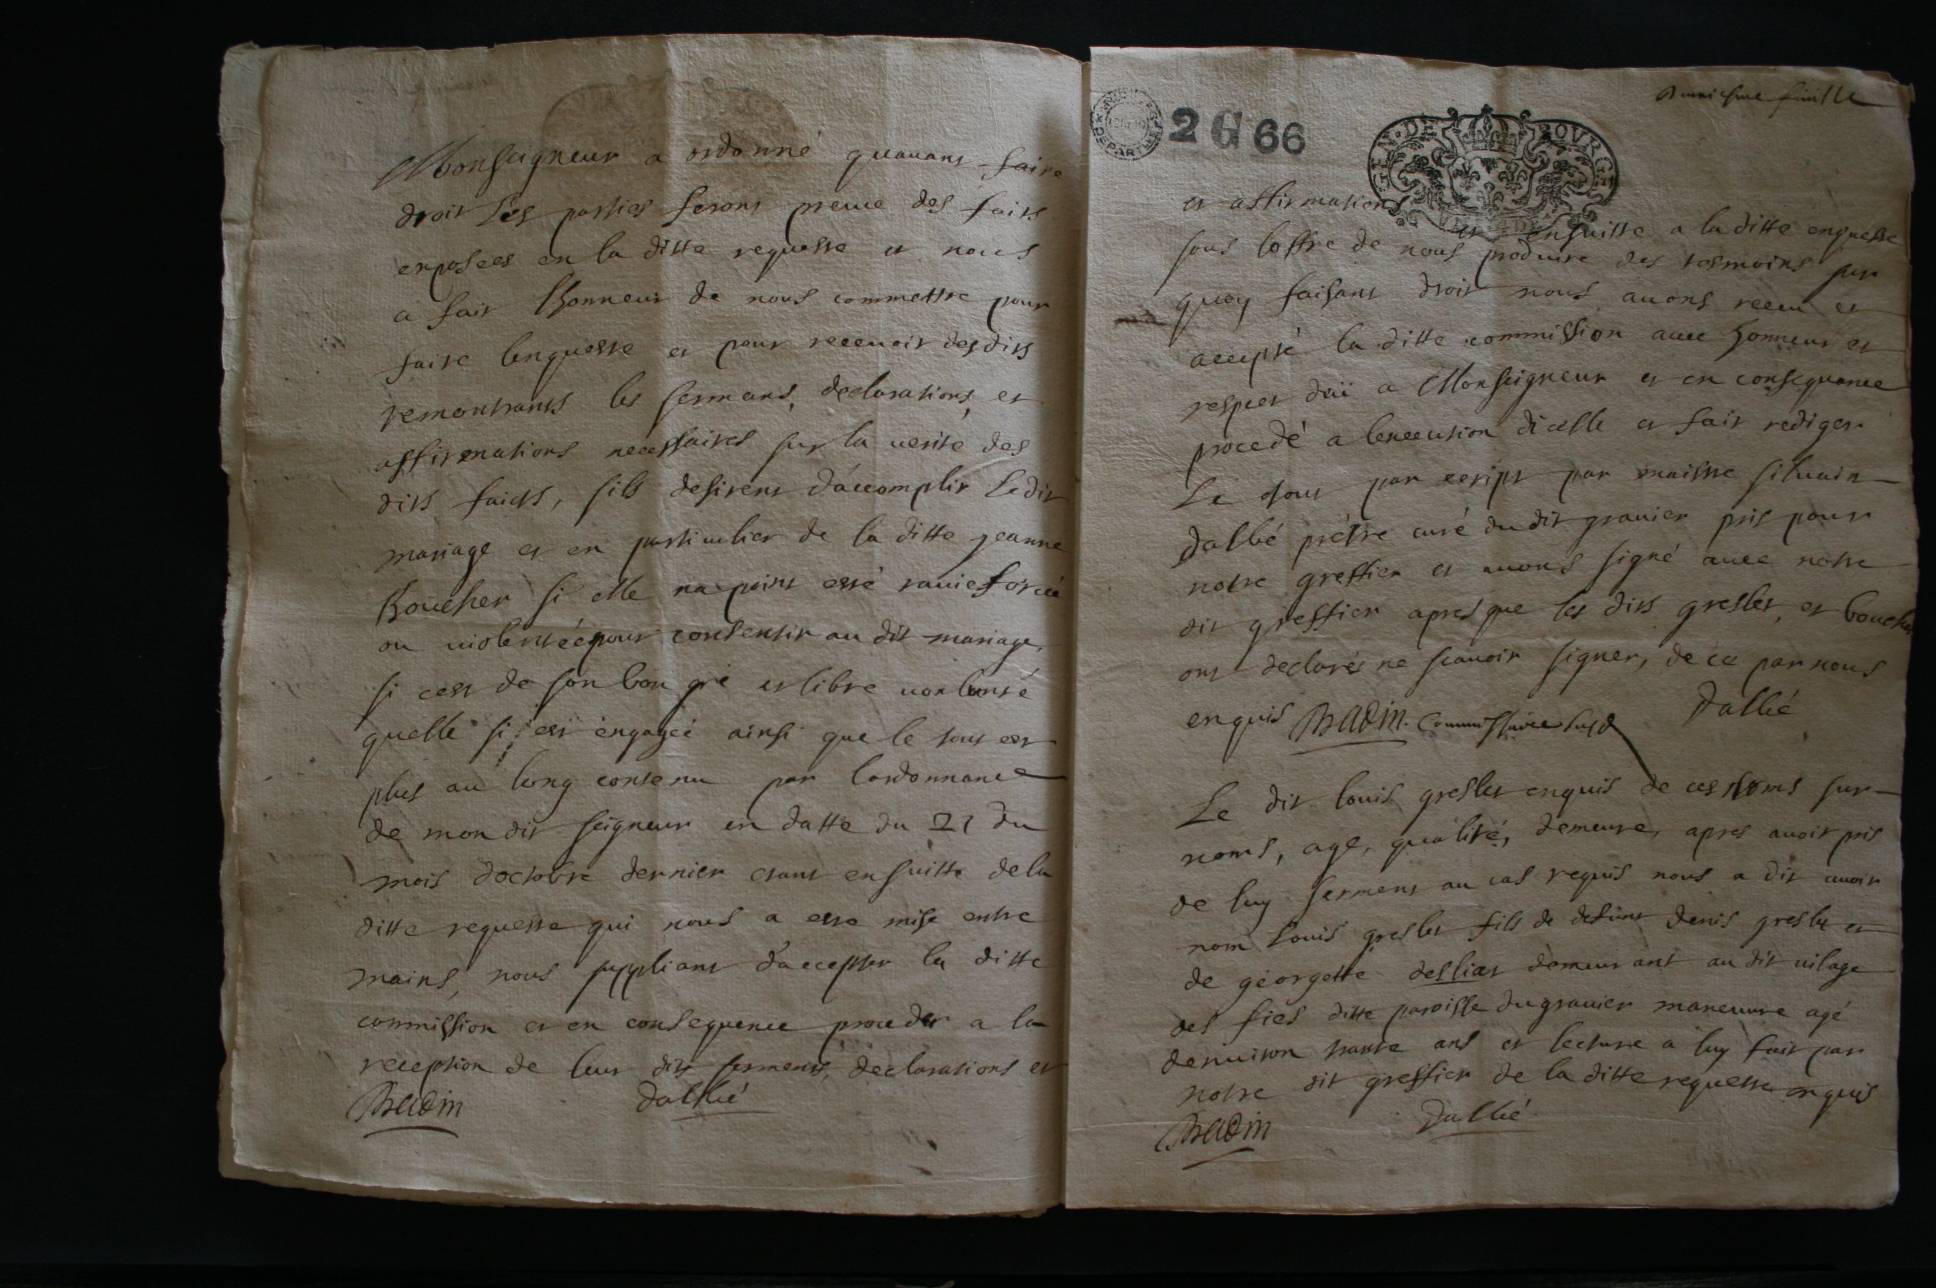 Monseigneur a ordonné quauant faire
droit Les parties feront preuue des faits
exposées en la ditte requeste et nous
a fait lhonneur de nous commettre pour
faire lenqueste et pour receuoir desdits
remontrants les sermans, declarations, et
affirmations necessaires sur la verité des
dits faicts, sils desirent daccomplir Ledit
mariage et en particulier de la ditte jeanne
Boucher si elle na point esté rauie forcée
ou uiolentée pour consentir au dit mariage,
si cest de son bon gré et libre uolonté
quelle si est engagée ainsi que le tout est
plus au long contenu par lordonnance
de mon dit seigneur en datte du 21 du
mois doctobre dernier estant ensuitte de la
ditte requeste qui nous a esté mise entre
mains, nous suppliant daccepter la ditte
commission et en consequence proceder a la
reception de leur dits serments, declarations et
Badin Dallié
2 G 66
GEN. DE BOURGES
feuille
et affirmations et ensuitte a la ditte enqueste
sous loffre de nous produire des tesmoins sur
quoy faisant droit nous auons receu et
accepté la ditte commission auec honneur et
respect deü a Monseigneur et en consequance
procedé a lexecution dicelle et fait rediger
Le tout par escript par maistre siluain
Dallié prétre curé du dit grauier pris pour
notre greffier et auons signé auec notre
dit greffier apres que les dits greslet, et boucher
ont declarés ne scauoir signer, de ce par nous
enquis Badin. Commissaire susd Dallié
Le dit louis greslet enquis de ces noms sur-
noms, age, qualité, demeure, apres auoir pris
de luy serment au cas requis nous a dit auoir
nom Louis greslet fils de defunt denis greslet et
de géorgette desliat demeurant au dit uilage
des fies ditte paroisse du grauier maneuure agé
denuiron trante ans et lecture a luy fait par
notre dit greffier de la ditte requeste enquis
Badin Dallié